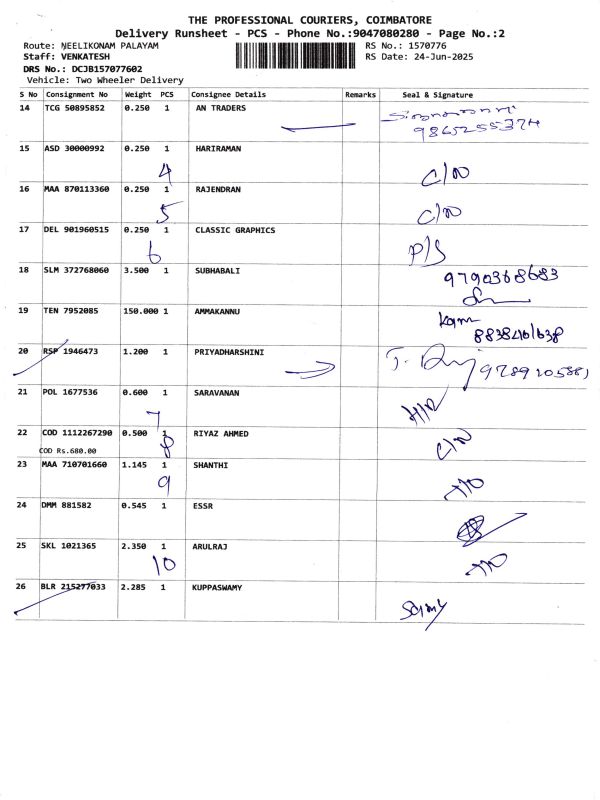 THE PROFESSIONAL COURIERS, COIMBATORE
Delivery Runsheet - PCS - Phone No.:9047080280 - Page No.:2
Route: NEELIKONAM PALAYAM RS No.: 1570776
Staff: VENKATESH RS Date: 24-Jun-2025
DRS No.: DCJB157077602
Vehicle: Two Wheeler Delivery
S No Consignment No Weight PCS Consignee Details Remarks Seal & Signature
14 TCG 50895852 0.250 1 AN TRADERS
15 ASD 30000992 0.250 1 HARIRAMAN
4 C/N
16 MAA 870113360 0.250 1 RAJENDRAN
5 C/N
17 DEL 901960515 0.250 1 CLASSIC GRAPHICS
6 P/S
18 SLM 372768060 3.500 1 SUBHABALI
9790368683
19 TEN 7952085 150.000 1 AMMAKANNU
20 RSP 1946473 1.200 1 PRIYADHARSHINI
21 POL 1677536 0.600 1 SARAVANAN
7
22 COD 1112267290 0.500 1 RIYAZ AHMED
COD Rs.680.00 8 C/N
23 MAA 710701660 1.145 1 SHANTHI
9
24 DMM 881582 0.545 1 ESSR
25 SKL 1021365 2.350 1 ARULRAJ
10
26 BLR 215277033 2.285 1 KUPPASWAMY
Samy